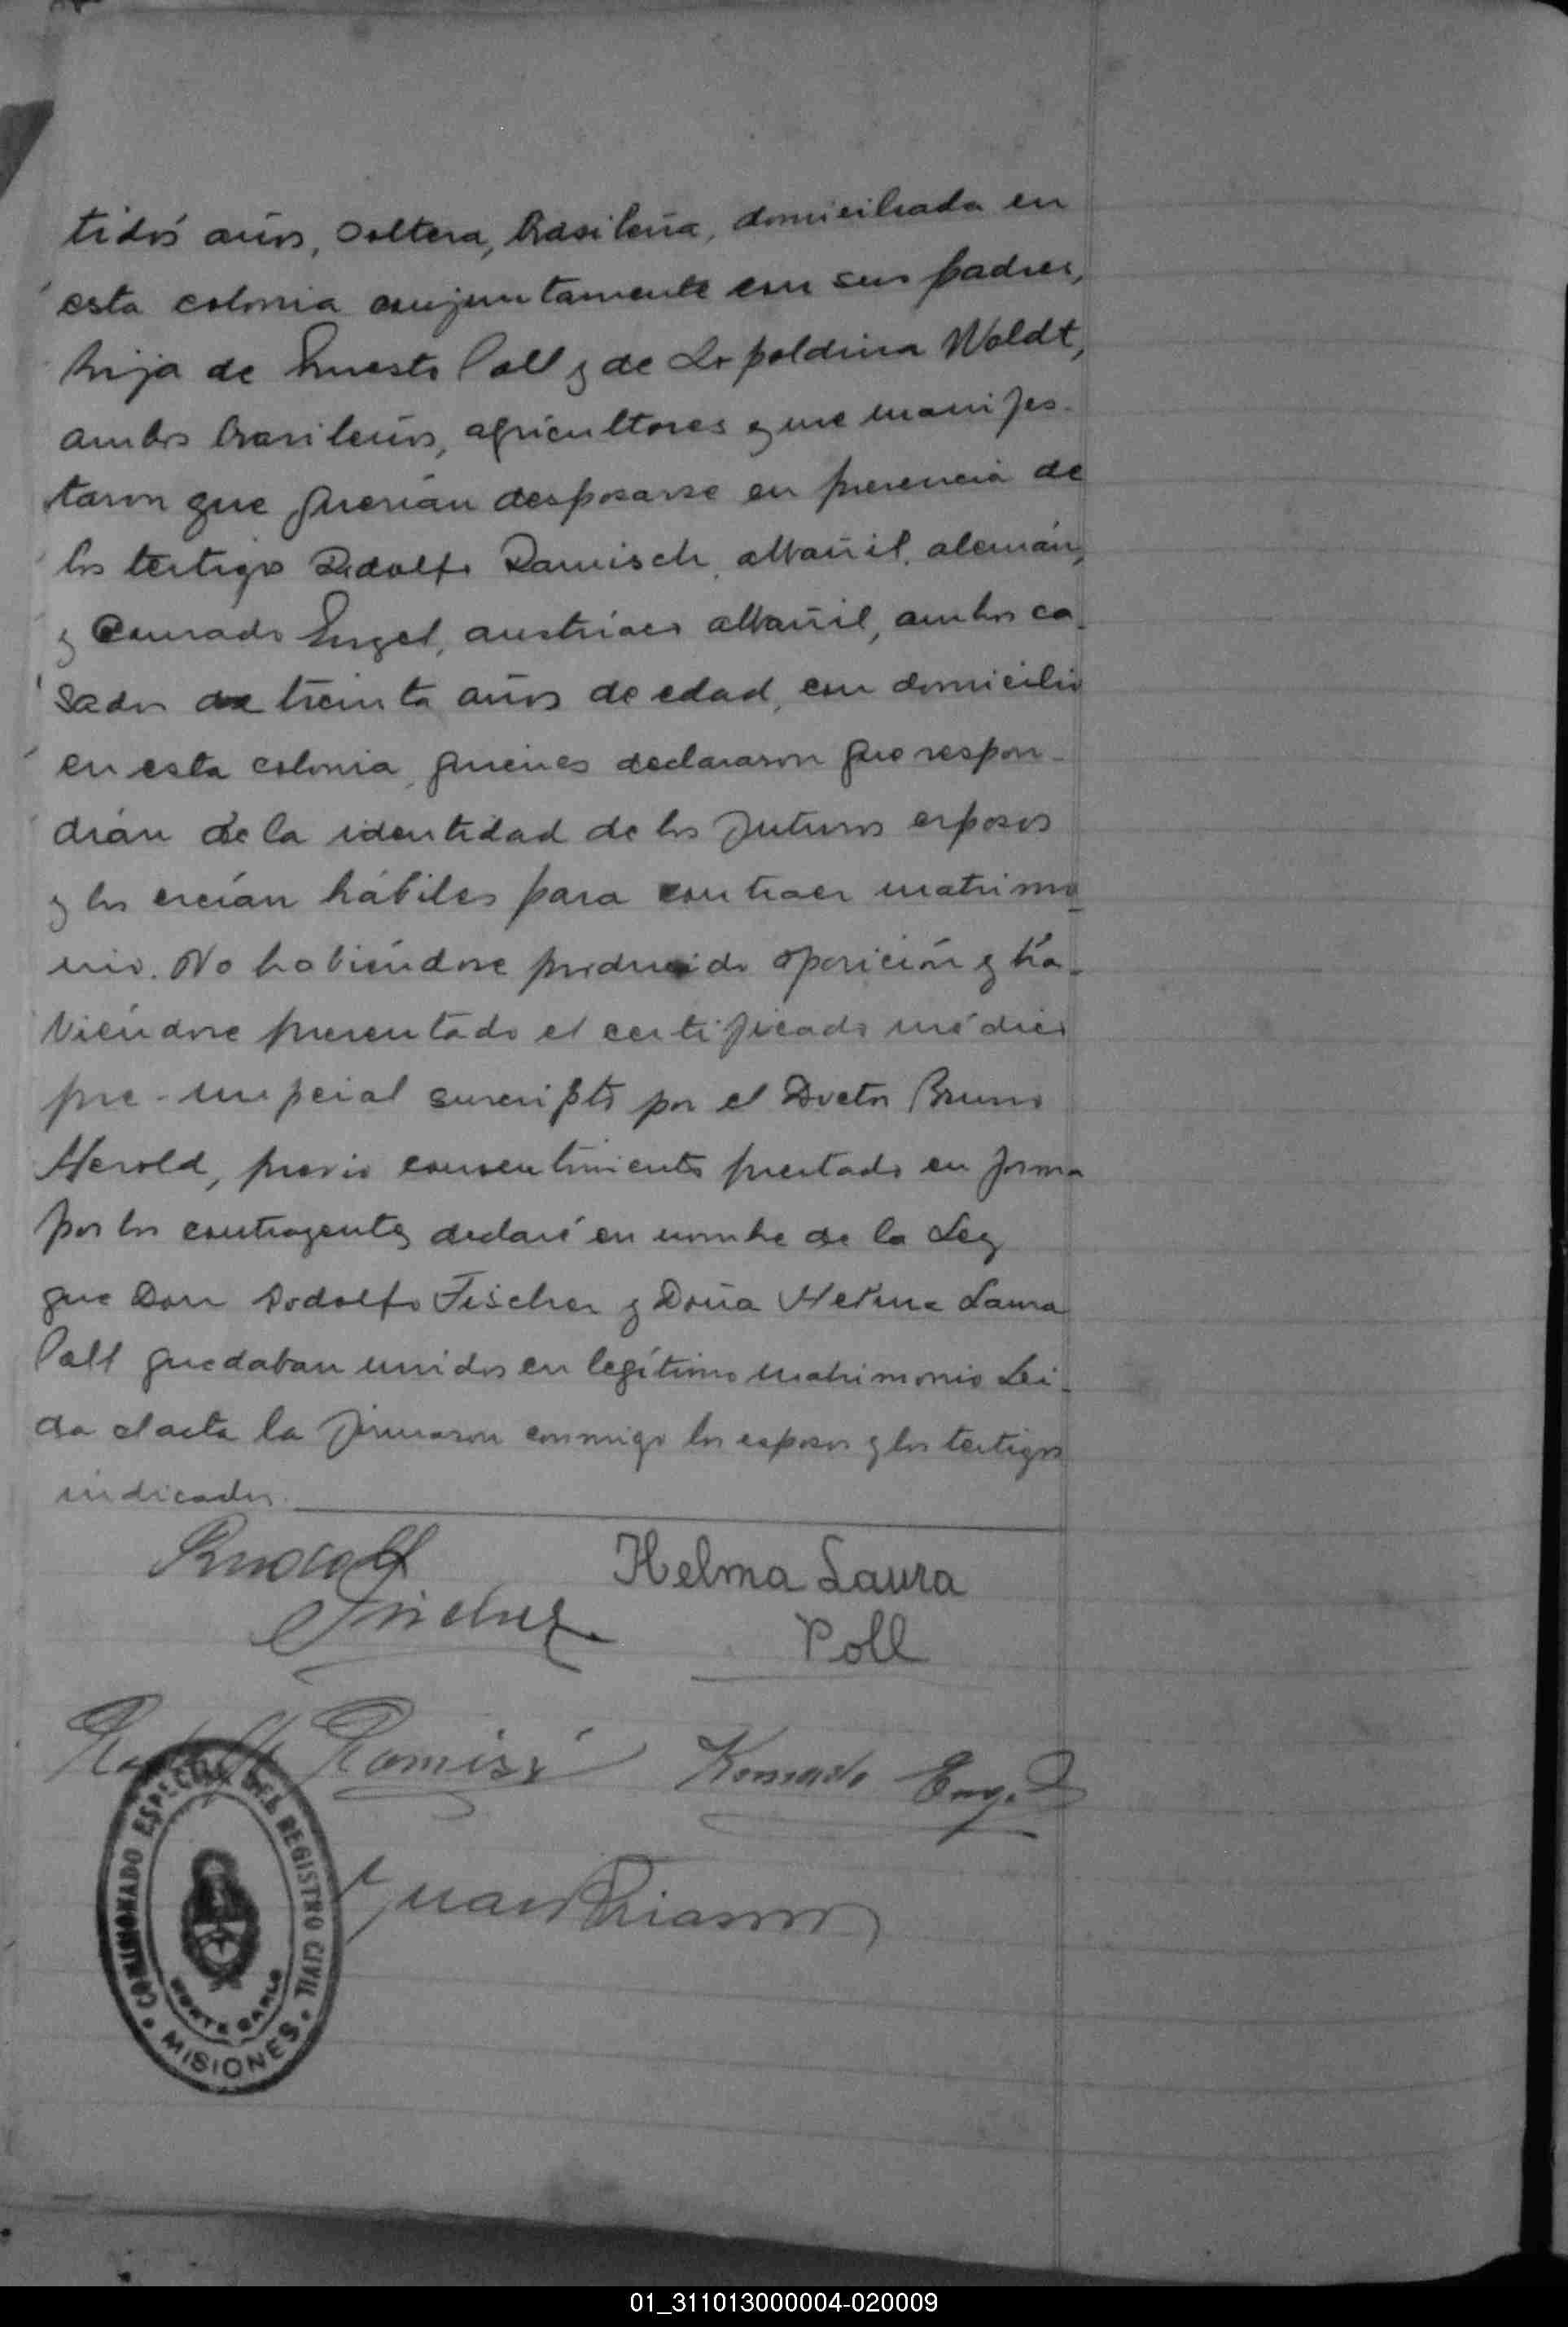 tidós años, soltera, brasileña, domiciliada en
esta colonia conjuntamente con sus padres,
hija de Ernesto Poll y de Leopoldina Woldt,
ambos brasileños, agricultores y me manifes-
taron que querían desposarse en presencia de
los testigos Rodolfo Ramisch, albañil, alemán,
y Conrado Engel, austríaco albañil, ambos ca-
sados de treinta años de edad, con domicilio
en esta colonia, quienes declararon que respon-
drían de la identidad de los futuros esposos
y los creían hábiles para contraer matrimo-
nio. No habiéndose producido oposición y ha-
biéndose presentado el certificado médico
pre-nupcial suscripto por el Doctor Bruno
Herold, previo consentimiento prestado en forma
por los contrayentes declaré en nombre de la Ley
que Don Rodolfo Fischer y Doña Helma Laura
Poll quedaban unidos en legítimo matrimonio Leí-
da el acta la firmaron conmigo los esposos y los testigos
indicados.
Rudolf Helma Laura
Fischer Poll
Ramisch Konrado Engel
Juan
COMISIONADO ESPECIAL DEL REGISTRO CIVIL
MONTE CARLO
MISIONES
01_311013000004-020009